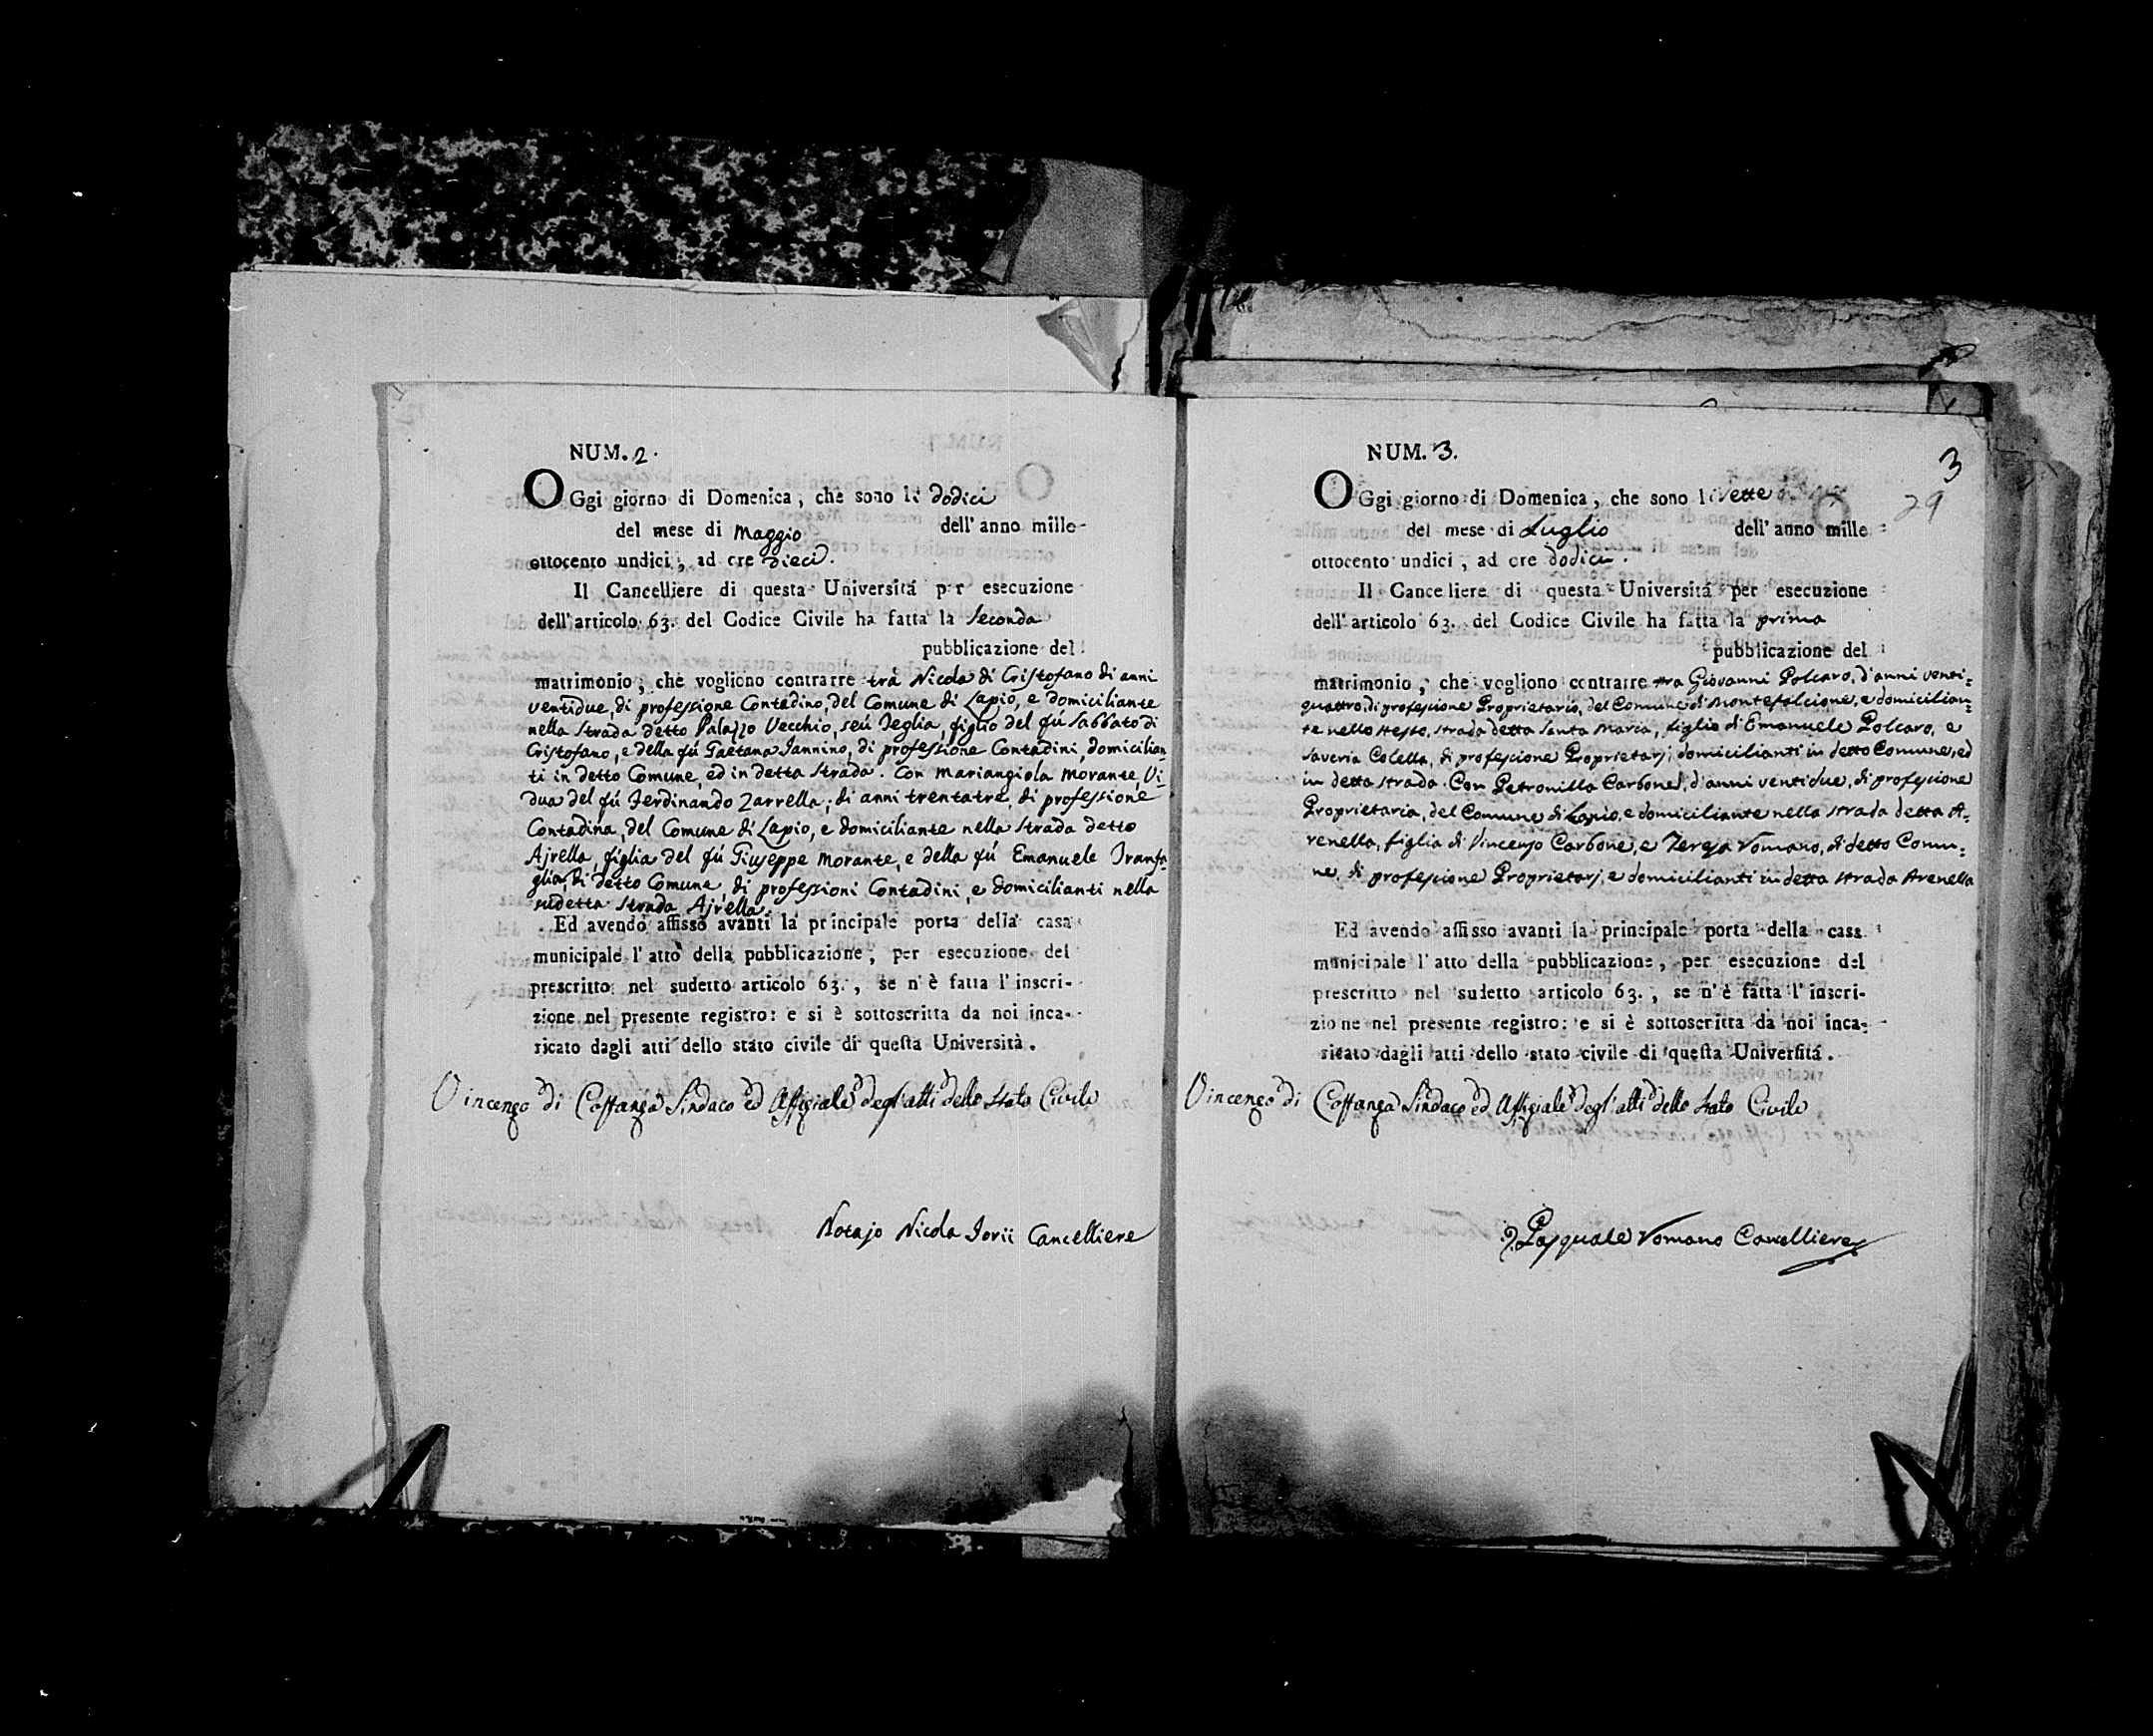 NUM. 2.
OGgi giorno di Domenica, che sono li dodici
del mese di Maggio dell'anno mille-
ottocento undici, ad ore dieci.
Il Cancelliere di questa Universitá per esecuzione
dell'articolo 63. del Codice Civile ha fatta la seconda
pubblicazione del
matrimonio, che vogliono contrarre trà Nicola di Cristofano di anni
ventidue, di professione Contadino, del Comune di Lapio, e domiciliante
nella strada detto Palazzo Vecchio, seú Teglia, figlio del fú Sabbato di
Cristofano, e della fú Gaetana Iannino, di professione Contadini, domicilian
ti in detto Comune, ed in detta strada. Con Mariangiola Morante, Vi=
dua del fú Ferdinando Zarrella; di anni trentatre, di professione
Contadina, del Comune di Lapio, e domiciliante nella strada detto
Ajrella, figlia del fú Giuseppe Morante, e della fú Emanuele Tranfa=
glia, di detto Comune, di professioni Contadini, e domicilianti nella
sudetta strada Ajrella.
Ed avendo affisso avanti la principale porta della casa
municipale l'atto della pubblicazione, per esecuzione del
prescritto nel sudetto articolo 63., se n'è fatta l'inscri-
zione nel presente registro: e si è sottoscritta da noi inca-
ricato dagli atti dello stato civile di questa Università.
Vincenzo di Costanza Sindaco ed Affiziale degl'atti dello Stato Civile
Notajo Nicola Iorii Cancelliere
3
29
NUM. 3.
OGgi giorno di Domenica, che sono li sette
del mese di Luglio dell'anno mille
ottocento undici, ad ore dodici.
Il Cancelliere di questa Universitá per esecuzione
dell'articolo 63. del Codice Civile ha fatta la prima
pubblicazione del
matrimonio, che vogliono contrarre tra Giovanni Polcaro, d'anni venti=
quattro, di professione Proprietario, del Comune di Montefalcione, e domicilian=
te nello stesso, strada detta Santa Maria, figlio di Emanuele Polcaro, e
Saveria Colella, di professione Proprietarj, domicilianti in detto Comune, ed
in detta strada. Con Petronilla Carbone, d'anni ventidue, di professione
Proprietaria, del Comune di Lapio, e domiciliante nella strada detta A=
renella, figlia di Vincenzo Carbone, e Teresa Romano, di detto Comu=
ne, di professione Proprietarj, e domicilianti in detta strada Arenella
Ed avendo affisso avanti la principale porta della casa
municipale l'atto della pubblicazione, per esecuzione del
prescritto nel sudetto articolo 63., se n'è fatta l'inscri-
zione nel presente registro: e si è sottoscritta da noi inca-
ricato dagli atti dello stato civile di questa Universitá.
Vincenzo di Costanza Sindaco ed Affiziale degl'atti dello Stato Civile
Pasquale Romano Cancelliere